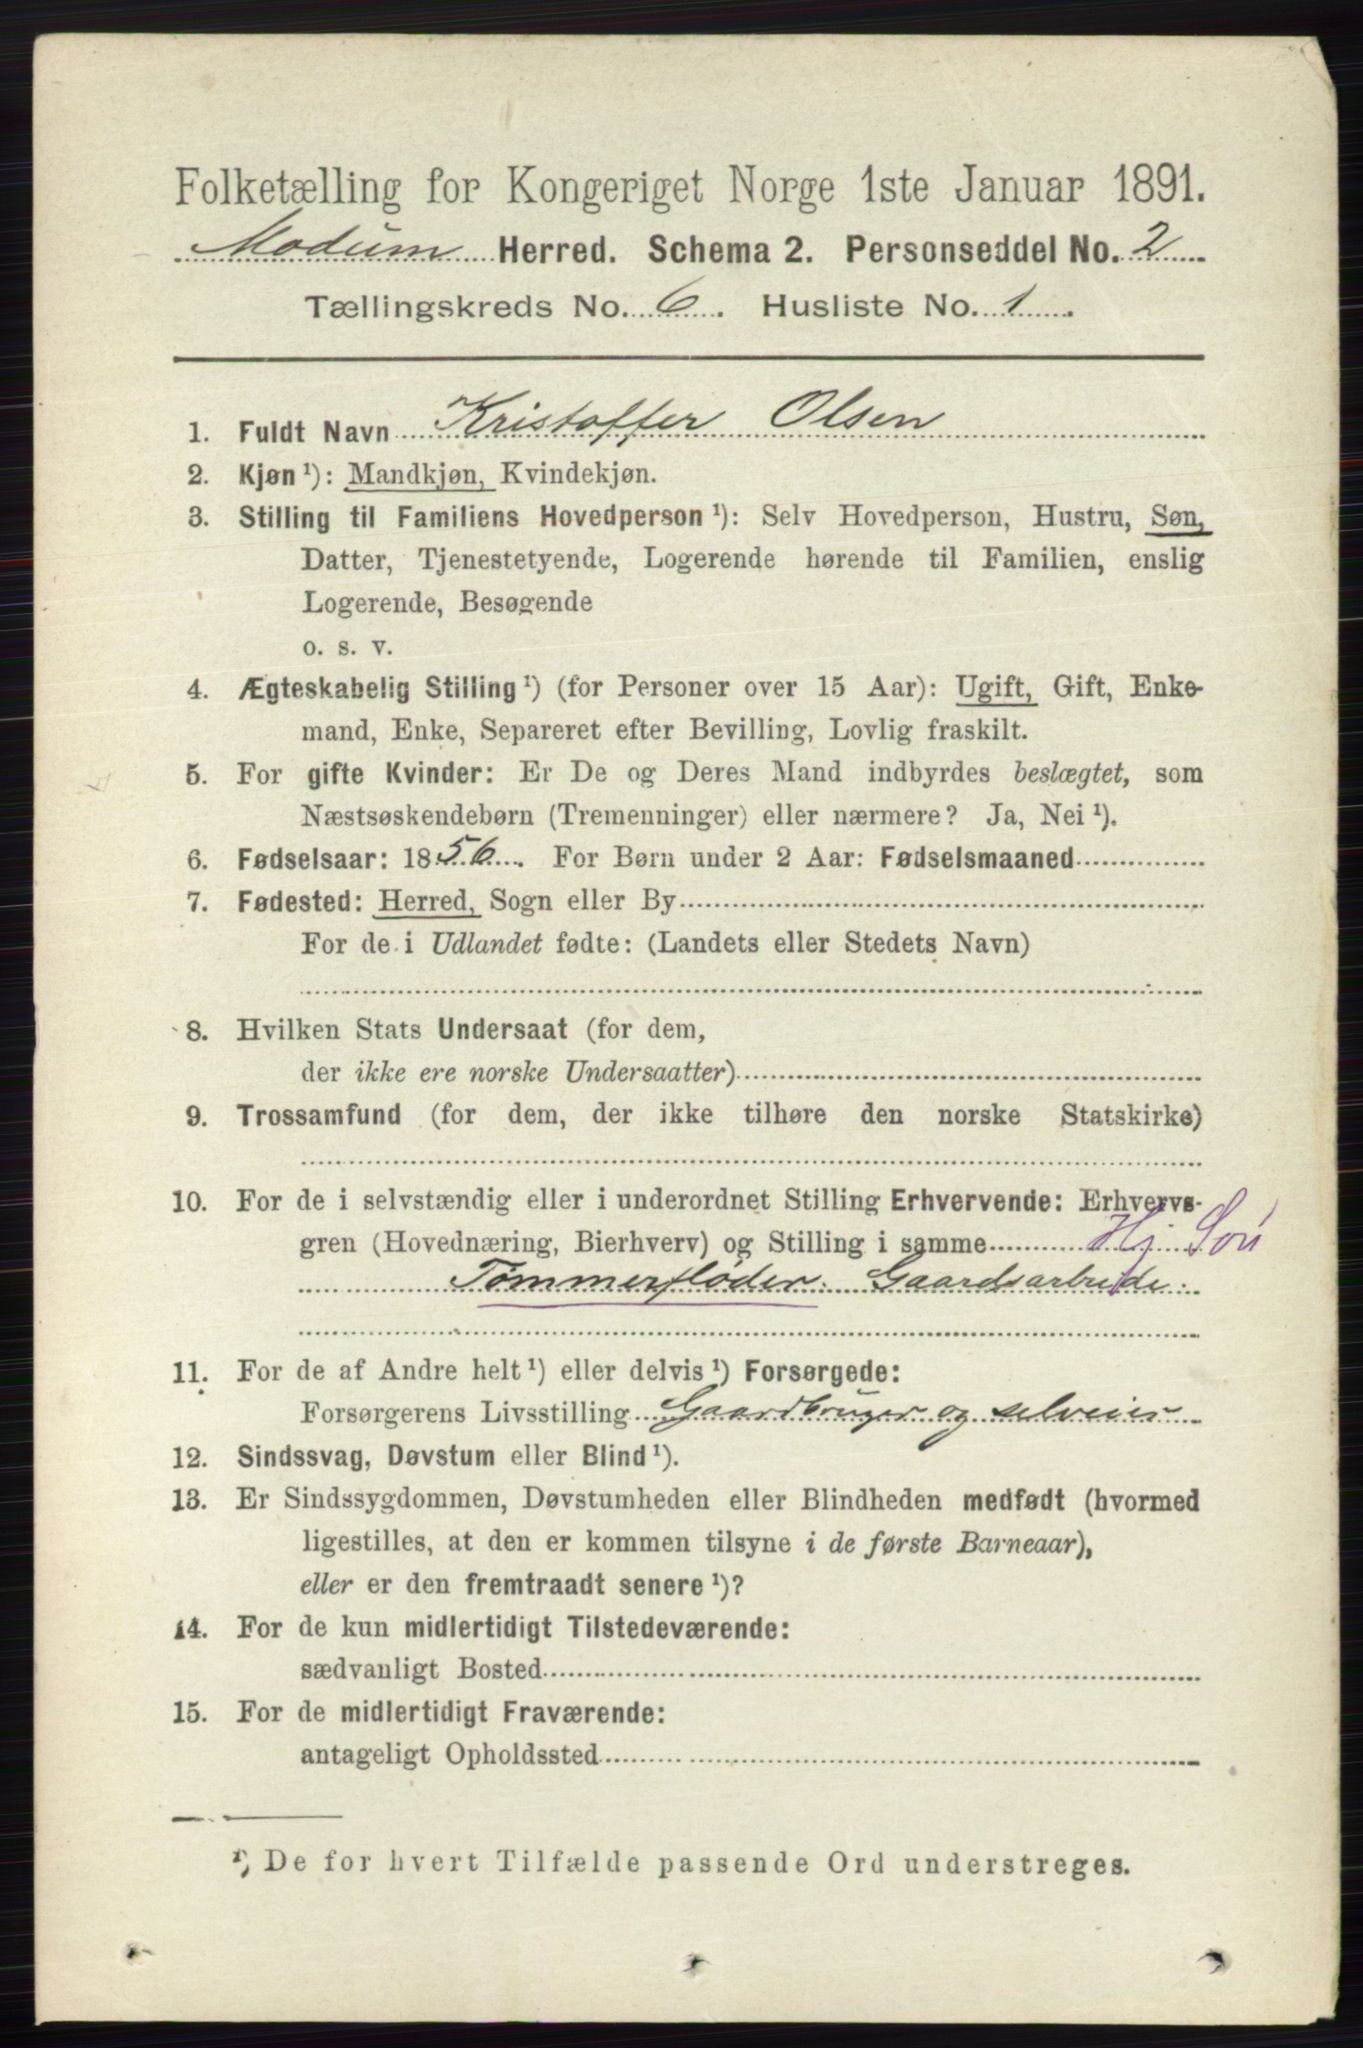 Folketælling for Kongeriget Norge 1ste Januar 1891.
Modum Herred. Schema 2. Personseddel No. 2
Tællingskreds No. 6. Husliste No. 1.
1. Fuldt Navn Kristoffer Olsen
2. Kjøn ¹): Mandkjøn, Kvindekjøn.
3. Stilling til Familiens Hovedperson ¹): Selv Hovedperson, Hustru, Søn,
Datter, Tjenestetyende, Logerende hørende til Familien, enslig
Logerende, Besøgende
o. s. v.
4. Ægteskabelig Stilling ¹) (for Personer over 15 Aar): Ugift, Gift, Enke-
mand, Enke, Separeret efter Bevilling, Lovlig fraskilt.
5. For gifte Kvinder: Er De og Deres Mand indbyrdes beslægtet, som
Næstsøskendebørn (Tremenninger) eller nærmere? Ja, Nei ¹).
6. Fødselsaar: 1856. For Børn under 2 Aar: Fødselsmaaned
7. Fødested: Herred, Sogn eller By
For de i Udlandet fødte: (Landets eller Stedets Navn)
8. Hvilken Stats Undersaat (for dem,
der ikke ere norske Undersaatter)
9. Trossamfund (for dem, der ikke tilhøre den norske Statskirke)
10. For de i selvstændig eller i underordnet Stilling Erhvervende: Erhvervs-
gren (Hovednæring, Bierhverv) og Stilling i samme Hj. Søn
Tømmerfløder. Gaardsarbeide.
11. For de af Andre helt ¹) eller delvis ¹) Forsørgede:
Forsørgerens Livsstilling Gaardbruger og selveier
12. Sindssvag, Døvstum eller Blind ¹).
13. Er Sindssygdommen, Døvstumheden eller Blindheden medfødt (hvormed
ligestilles, at den er kommen tilsyne i de første Barneaar),
eller er den fremtraadt senere ¹)?
14. For de kun midlertidigt Tilstedeværende:
sædvanligt Bosted
15. For de midlertidigt Fraværende:
antageligt Opholdssted
¹) De for hvert Tilfælde passende Ord understreges.